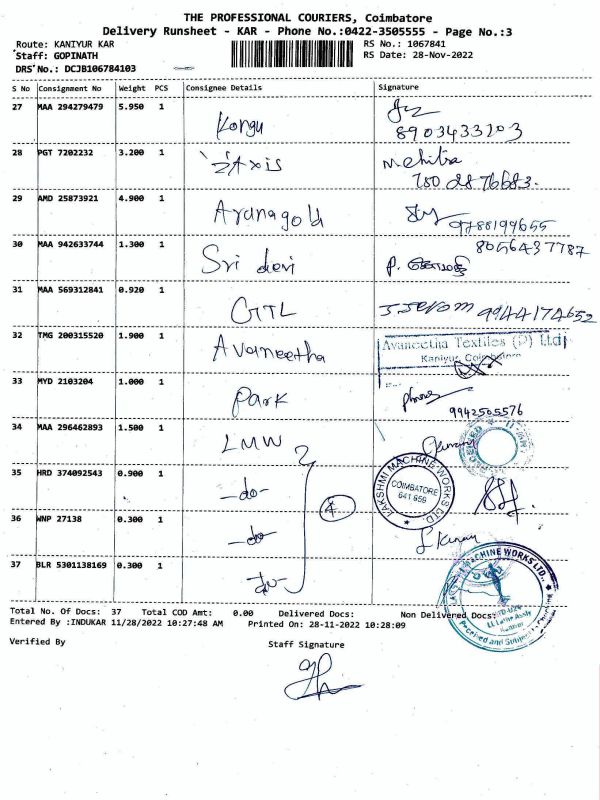 THE PROFESSIONAL COURIERS, Coimbatore
Delivery Runsheet - KAR - Phone No.:0422-3505555 - Page No.:3
Route: KANIYUR KAR
RS No.: 1067841
Staff: GOPINATH
RS Date: 28-Nov-2022
DRS No.: DCJB106784103
S No Consignment No Weight PCS Consignee Details Signature
27 MAA 294279479 5.950 1 Kongu
8903433203
28 PGT 7202232 3.200 1
29 AMD 25873921 4.900 1 Aryanagold 9788199655
30 MAA 942633744 1.300 1 Sri devi 8056437787
31 MAA 569312841 0.920 1 GTTL 9944174652
32 TMG 200315520 1.900 1 Avaneetha
Avaneetha Textiles (P) Ltd
Kaniyur, Coimbatore
33 MYD 2103204 1.000 1 Park
9942505576
34 MAA 296462893 1.500 1 LMW
35 HRD 374092543 0.900 1 -do-
LAKSHMI MACHINE WORKS LTD.
COIMBATORE
641 659
4
36 WNP 27138 0.300 1 -do-
37 BLR 5301138169 0.300 1 -do-
MACHINE WORKS LTD.
Total No. Of Docs: 37 Total COD Amt: 0.00 Delivered Docs: Non Delivered Docs:
Entered By :INDUKAR 11/28/2022 10:27:48 AM Printed On: 28-11-2022 10:28:09
Verified By
Staff Signature